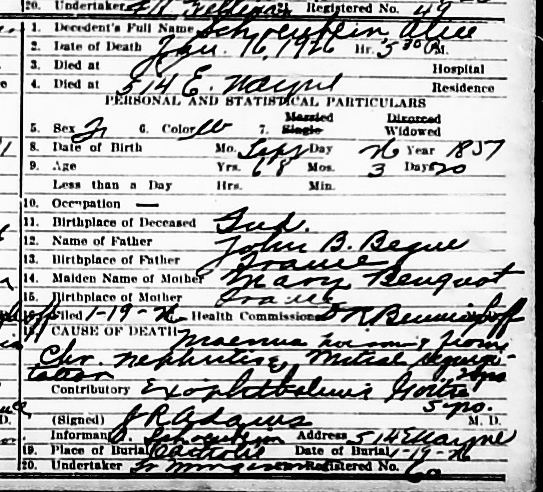 20. Undertaker Registered No. 49
1. Decedent's Full Name Schoenbein Alice
2. Date of Death Jan. 16, 1926 Hr. 5 30 P.M.
3. Died at Hospital
4. Died at 514 E. Wayne Residence
PERSONAL AND STATISTICAL PARTICULARS
5. Sex F 6. Color W 7. Married Single Divorced Widowed
8. Date of Birth Mo. Sept Day 26 Year 1857
9. Age Yrs. 68 Mos. 3 Days 20
Less than a Day Hrs. Min.
10. Occupation —
11. Birthplace of Deceased Ind.
12. Name of Father John B. Begue
13. Birthplace of Father France
14. Maiden Name of Mother Mary Benquot
15. Birthplace of Mother France
Filed 1-19-26 Health Commissioner
CAUSE OF DEATH from
Chr. Nephritis, Mitral Regurgi-
tation
Contributory Exophthalmic Goitre
5 yrs.
(Signed) J R Adams M. D.
Informant Address 514 E Wayne
19. Place of Burial Catholic Date of Burial 1-19-26
20. Undertaker Registered No.